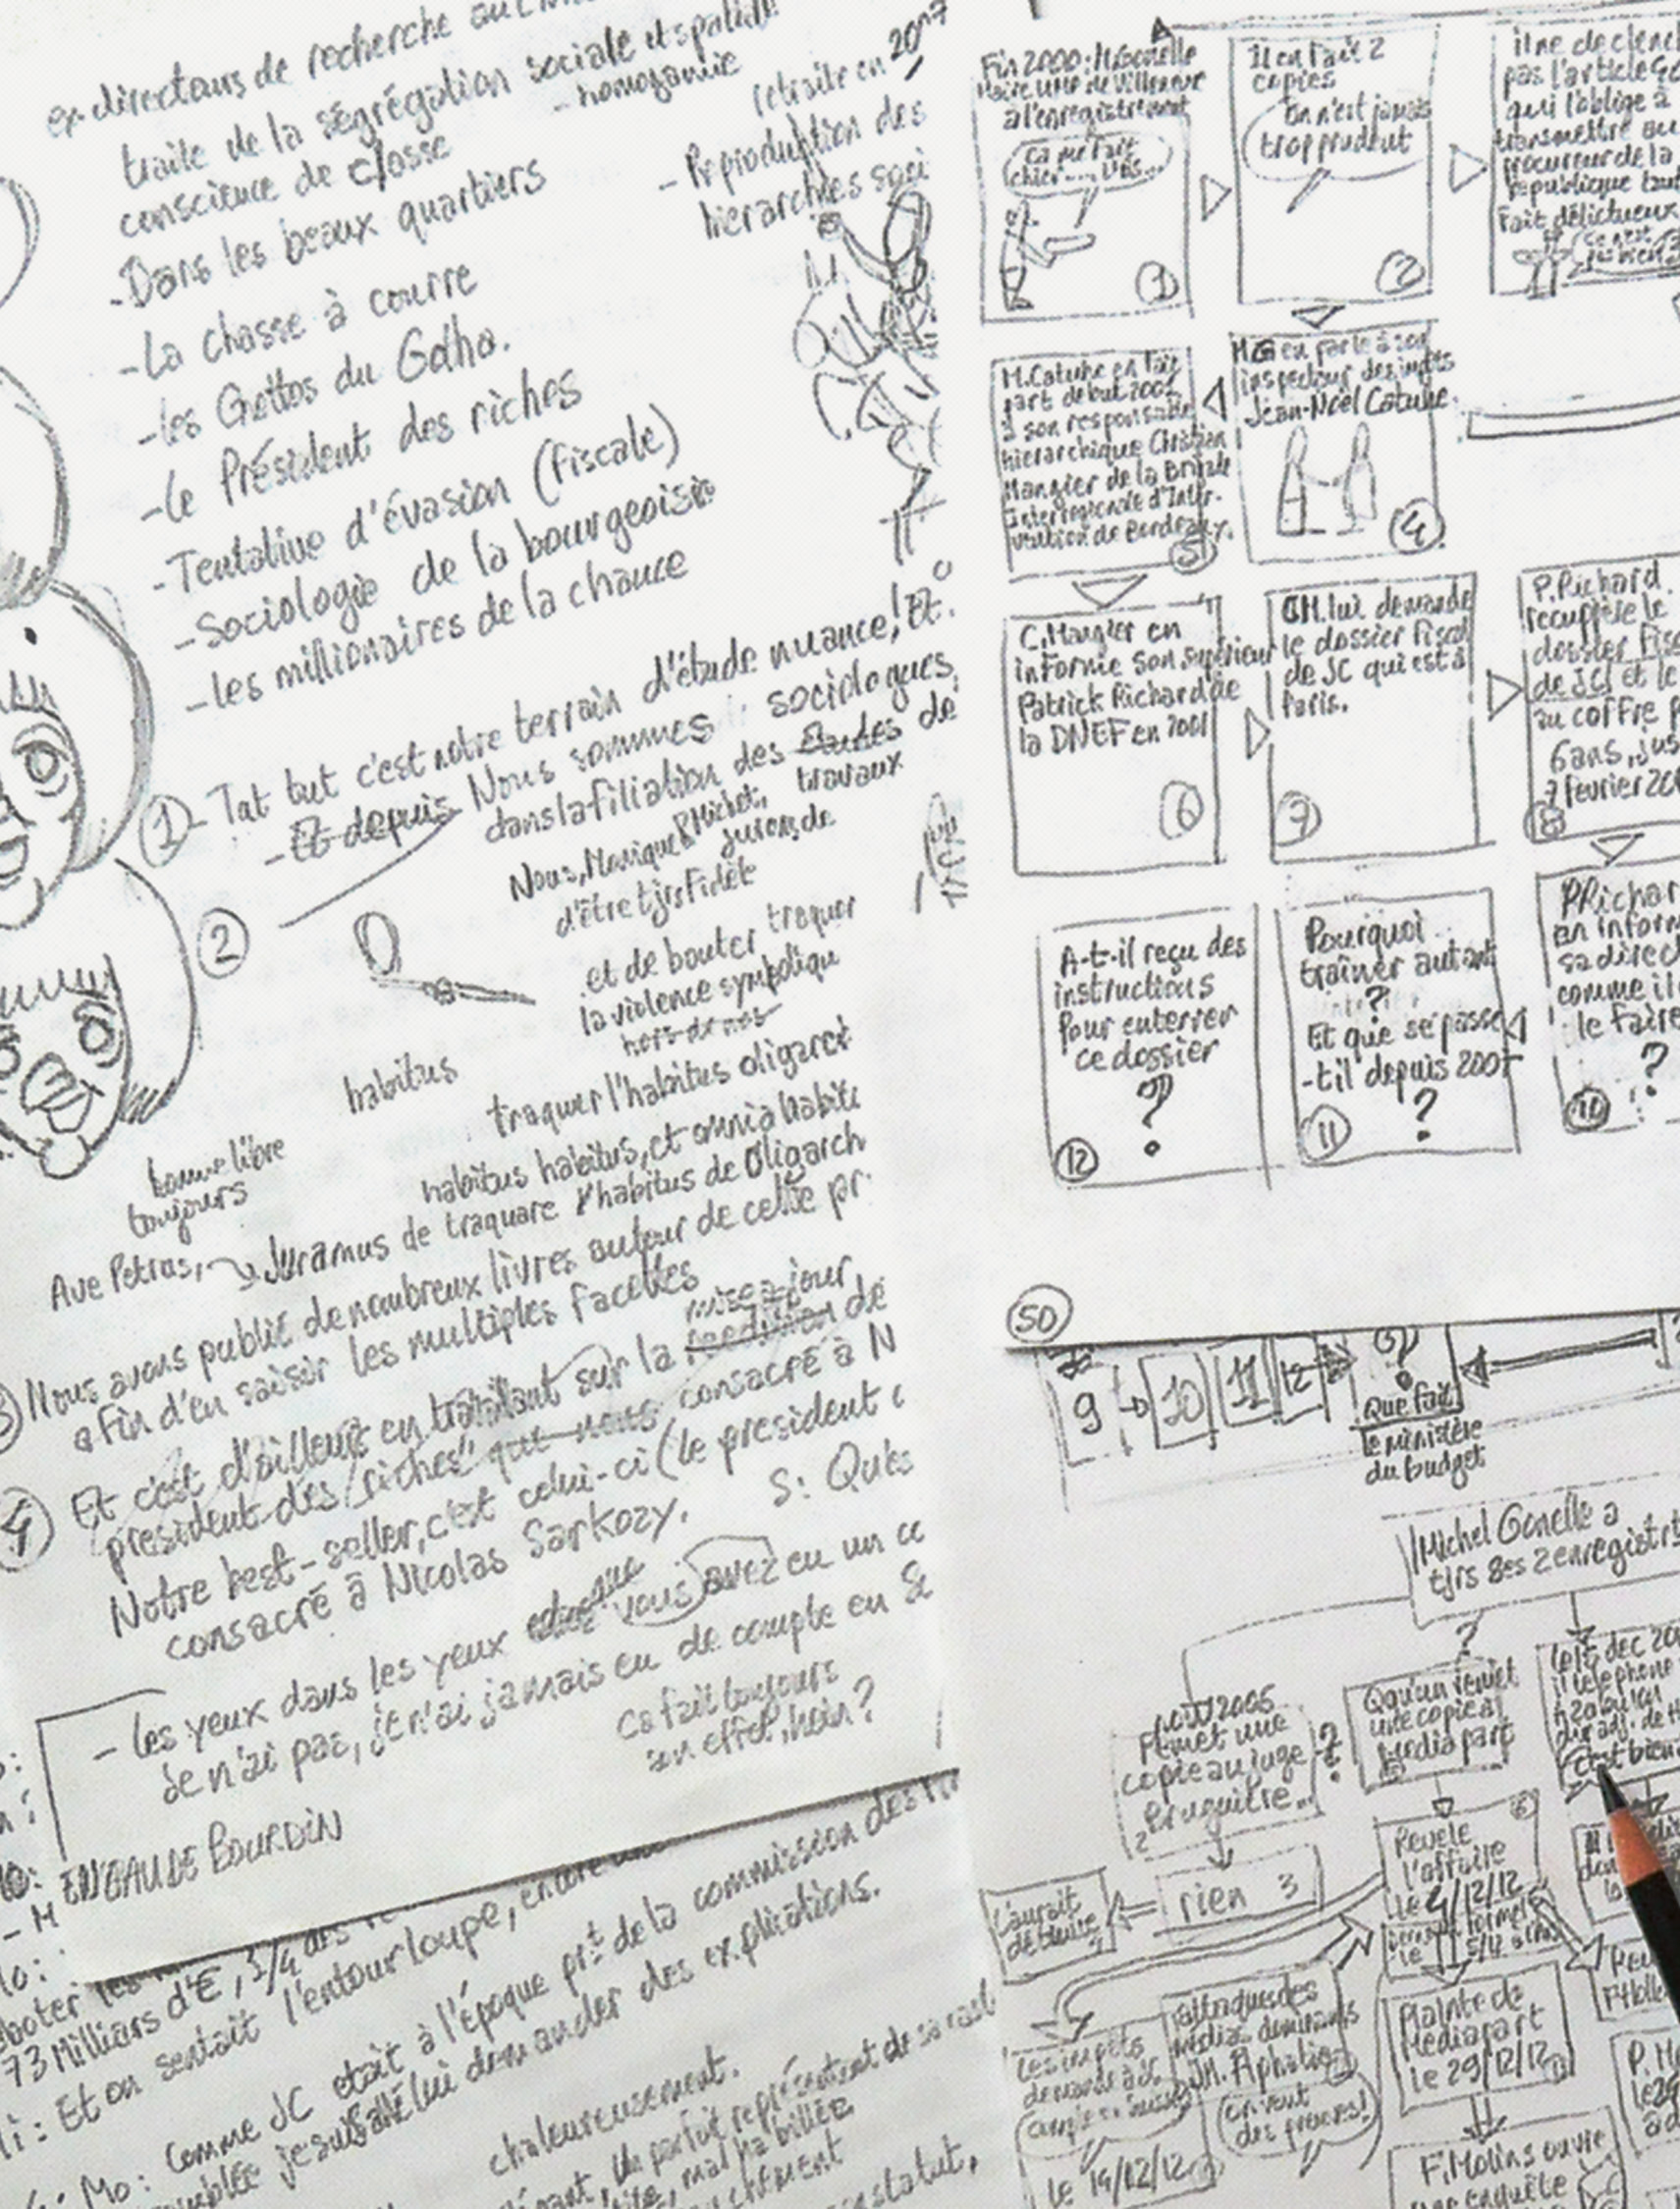 ex directeurs de recherche au CNRS
traite de la ségrégation sociale et spatiale
- homogamie
conscience de classe
retraite en 2007
- Reproduction des
hierarchies soci
- Dans les beaux quartiers
- La chasse à courre
- les Gettos du Gotha.
- Le Président des riches
- Tentative d'évasion (fiscale)
- Sociologie de la bourgeoisie
- les millionaires de la chance
① - Tat tut c'est notre terrain d'étude nuance! Et.
- Et depuis Nous sommes sociologues,
dans la filiation des études de
travaux
Nous, Monique & Michel, jurons de
d'être tjrs fidèle
②
et de bouter traquer
la violence symboliqu
hors de nos
habitus
traquer l'habitus oligarch
habitus habitus, et omnia habite
comme libre
toujours
Ave Petrus, Juramus de traquare l'habitus de Oligarch
Nous avons publié de nombreux livres autour de cette pr
afin d'en saisir les multiples facettes
mise a jour
④ Et c'est d'ailleurs en travaillant sur la reedition de
president des riches" que nous consacré à N
Notre best-seller, c'est celui-ci (le president
consacré à Nicolas Sarkozy.
S: Qu'es
- les yeux dans les yeux vous avez eu un cc
Je n'ai pas, je n'ai jamais eu de compte en S
Ca fait toujours
son effet, hein?
EN GAUDE BOURDIN
73 Milliars d'€, 3/4 des
i: Et on sentait l'entourloupe, encore
Mo: Comme JC etait à l'époque prt de la commission des
je suis allé lui demander des explications.
chaleureusement.
Un parfait représentant de sa cast
mal ha billée
Fin 2000: M. Gonelle
Maire UMP de Villeneuve
a l'enregistrement
Ca me fait
chier...., UBS...
①
Il en fait 2
copies
On n'est jamais
trop prudent
②
il ne declench
pas l'article 40
qui l'oblige à
transmettre au
procureur de la
republique tout
fait délictueux
M. G en parle à son
inspecteur des impôts
Jean-Noël Catuhe.
④
M. Catuhe en fait
part debut 2001
à son responsable
hierarchique Christian
Mangier de la Brigade
Interregionale d'Inter-
vention de Bordeaux.
⑤
C. Mangier en
informe son supérieur
Patrick Richard de
la DNEF en 2001
⑥
CM. lui demande
le dossier fiscal
de JC qui est à
Paris.
⑦
P. Richard
recupère le
dossier fisc
de JC et le
au coffre p
6 ans, jus
7 fevrier 200
⑧
P Richar
en inform
sa direct
comme il
le faire
?
⑩
Pourquoi
traîner autant
?
Et que se passe
-t-il depuis 2007
?
⑪
A-t-il reçu des
instructions
Pour enterrer
ce dossier
?
⑫
50
9 10 11 12
?
Que fait
le ministère
du budget
Michel Gonelle a
tjrs ses 2 enregistr
?
2006
remet une
copie au juge
Bruguière...
2
?
Qu'un remet
une copie à
Mediapart
Le 15 dec 20
il telephone
C'est bien
rien 3
L'aurait
détruite
Revele
l'affaire
le 4/12/12
attaques des
médias dominants
JM. Aphatie
on veut
des preuves!
les impots
demande à JC
le 14/12/12
Plainte de
Mediapart
le 29/12/12
F. Molins ouvre
une enquête